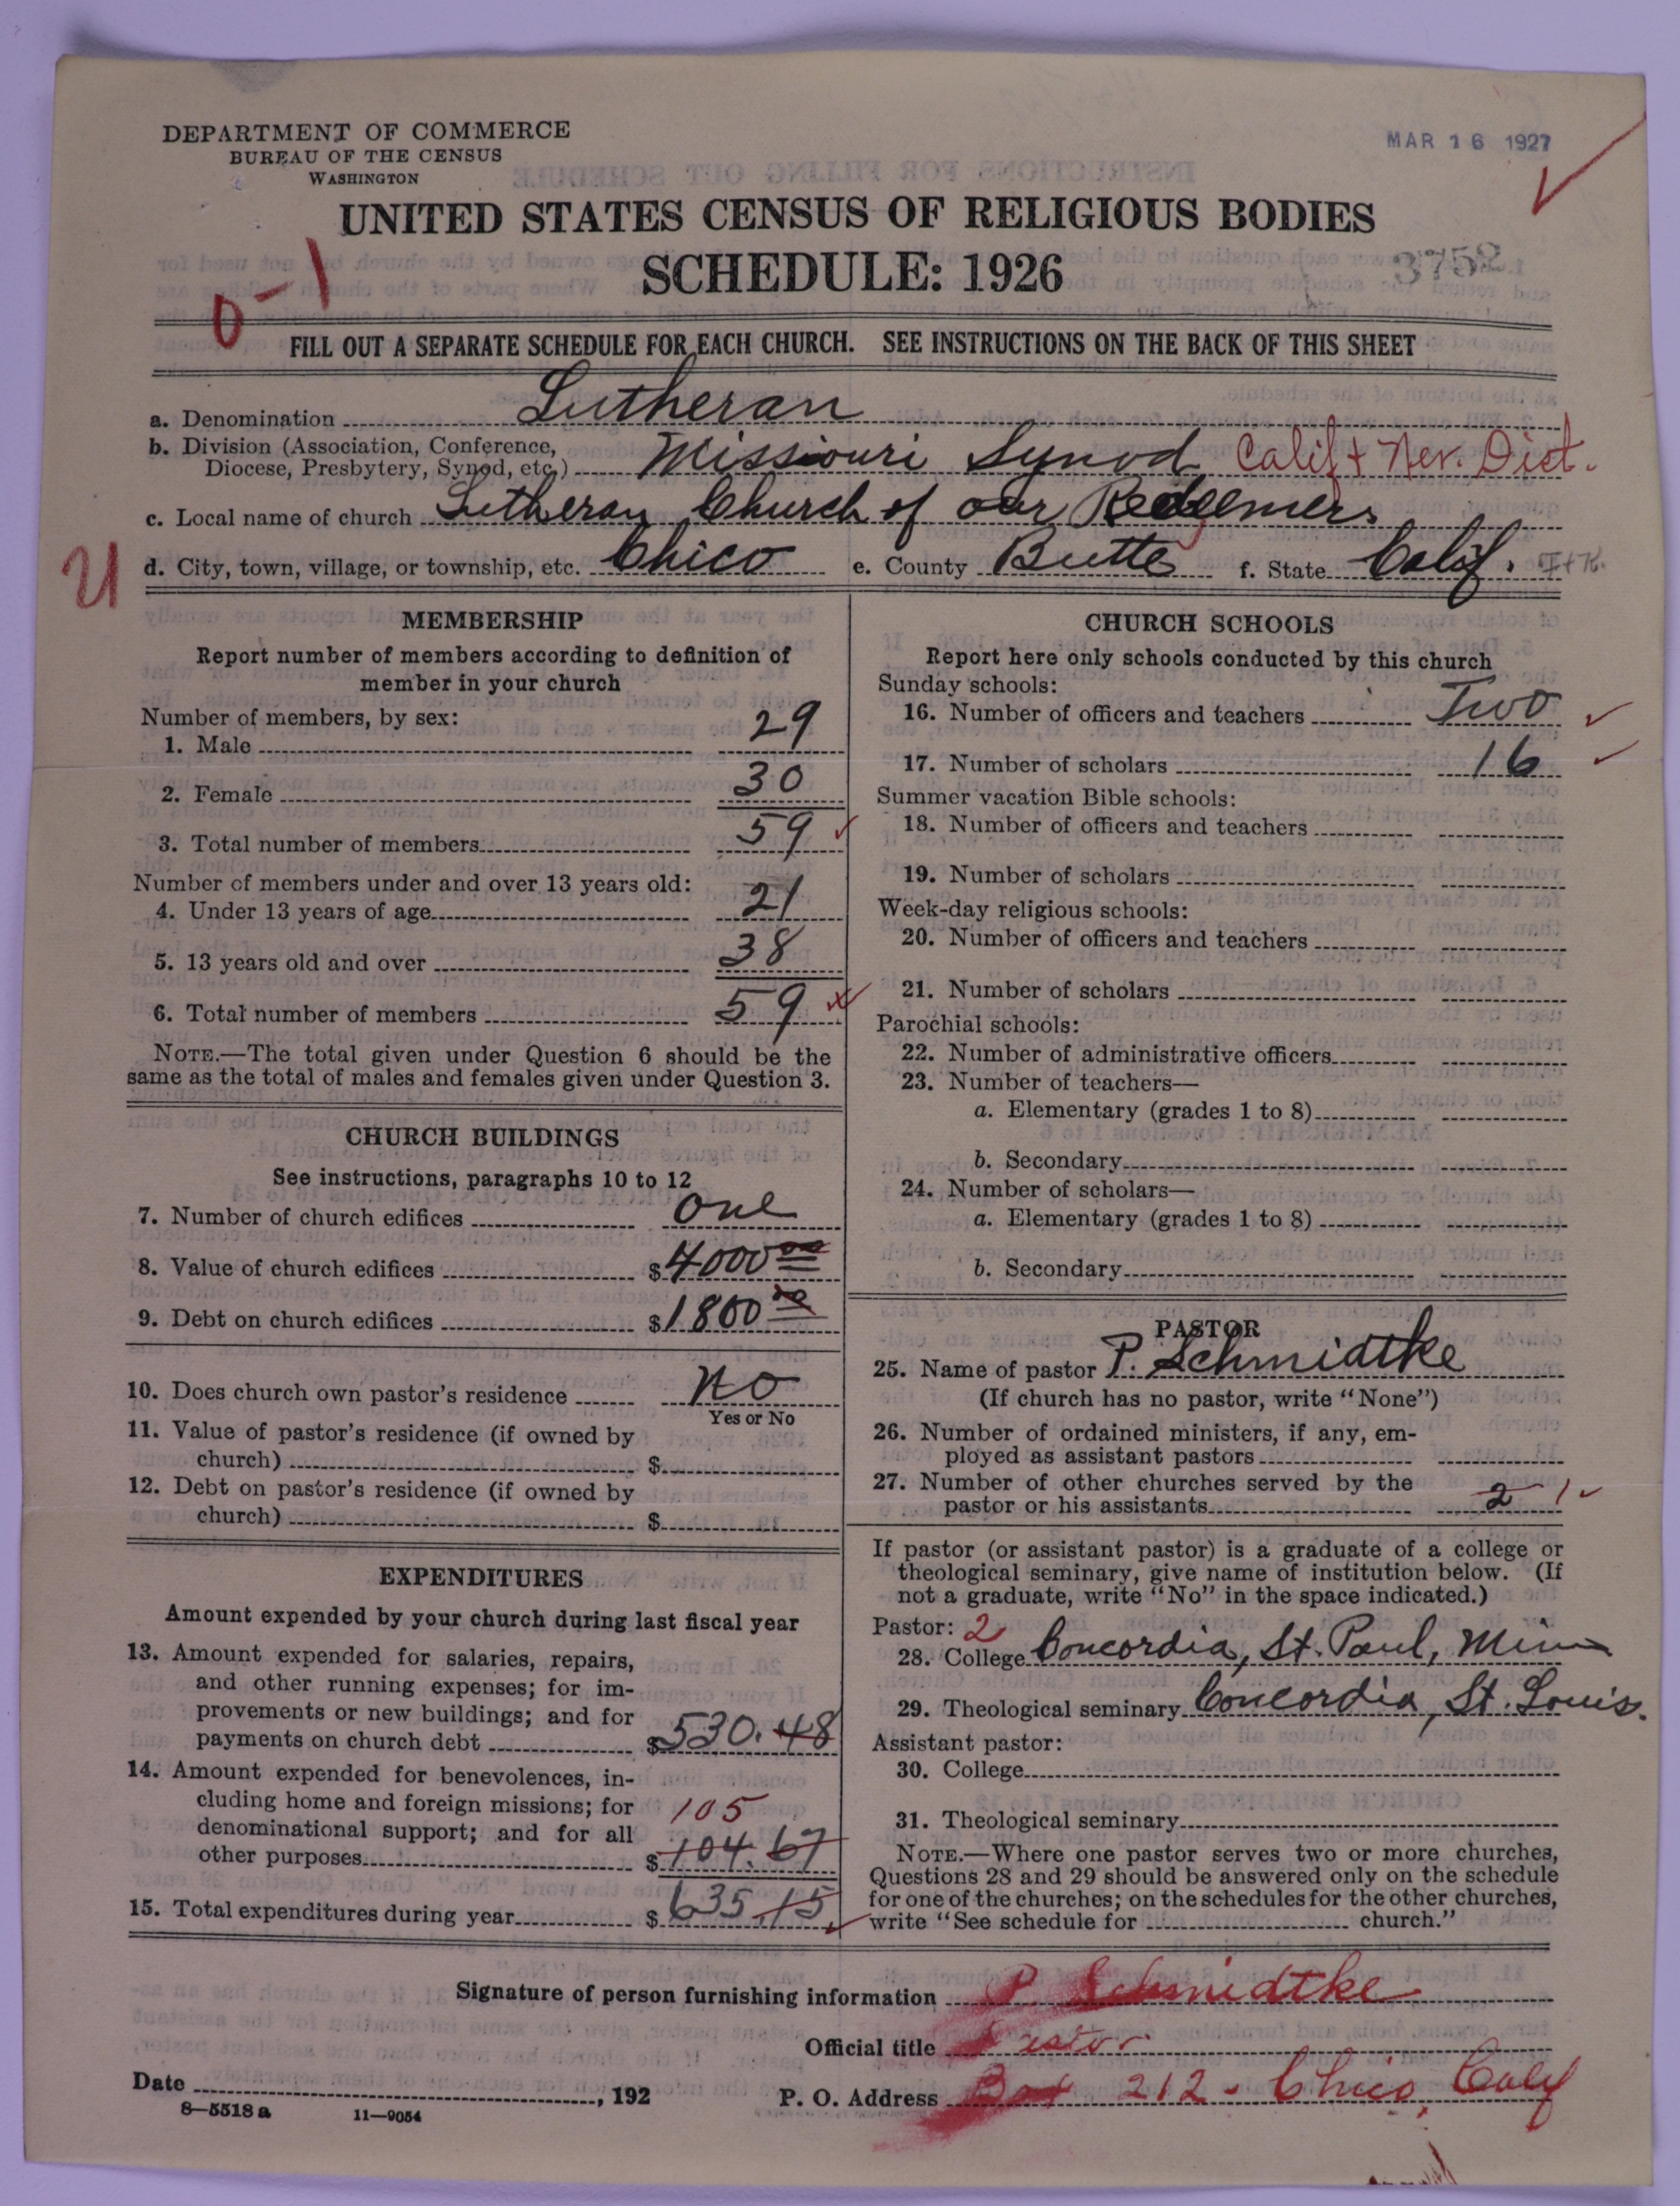 DEPARTMENT OF COMMERCE
BUREAU OF THE CENSUS
WASHINGTON
MAR 16 1927
UNITED STATES CENSUS OF RELIGIOUS BODIES
SCHEDULE: 1926
3752
0-1
FILL OUT A SEPARATE SCHEDULE FOR EACH CHURCH. SEE INSTRUCTIONS ON THE BACK OF THIS SHEET
a. Denomination Lutheran
b. Division (Association, Conference,
Diocese, Presbytery, Synod, etc.) Missouri Synod Calif + Nev. Dist.
c. Local name of church Lutheran Church of our Redeemer
U d. City, town, village, or township, etc. Chico e. County Butte f. State Calif.
MEMBERSHIP
Report number of members according to definition of
member in your church
Number of members, by sex:
1. Male 29
2. Female 30
3. Total number of members 59
Number of members under and over 13 years old:
4. Under 13 years of age 21
5. 13 years old and over 38
6. Total number of members 59
NOTE.—The total given under Question 6 should be the
same as the total of males and females given under Question 3.
CHURCH BUILDINGS
See instructions, paragraphs 10 to 12
7. Number of church edifices one
8. Value of church edifices $4000 00
9. Debt on church edifices $1800 00
10. Does church own pastor's residence No
Yes or No
11. Value of pastor's residence (if owned by
church) $
12. Debt on pastor's residence (if owned by
church) $
EXPENDITURES
Amount expended by your church during last fiscal year
13. Amount expended for salaries, repairs,
and other running expenses; for im-
provements or new buildings; and for
payments on church debt $530.48
14. Amount expended for benevolences, in-
cluding home and foreign missions; for 105
denominational support; and for all
other purposes $104.67
15. Total expenditures during year $635.15
CHURCH SCHOOLS
Report here only schools conducted by this church
Sunday schools:
16. Number of officers and teachers Two
17. Number of scholars 16
Summer vacation Bible schools:
18. Number of officers and teachers
19. Number of scholars
Week-day religious schools:
20. Number of officers and teachers
21. Number of scholars
Parochial schools:
22. Number of administrative officers
23. Number of teachers—
a. Elementary (grades 1 to 8)
b. Secondary
24. Number of scholars—
a. Elementary (grades 1 to 8)
b. Secondary
PASTOR
25. Name of pastor P. Schmidtke
(If church has no pastor, write "None")
26. Number of ordained ministers, if any, em-
ployed as assistant pastors
27. Number of other churches served by the
pastor or his assistants 2 1
If pastor (or assistant pastor) is a graduate of a college or
theological seminary, give name of institution below. (If
not a graduate, write "No" in the space indicated.)
Pastor: 2
28. College Concordia, St. Paul, Minn
29. Theological seminary Concordia, St. Louis.
Assistant pastor:
30. College
31. Theological seminary
NOTE.—Where one pastor serves two or more churches,
Questions 28 and 29 should be answered only on the schedule
for one of the churches; on the schedules for the other churches,
write "See schedule for church."
Signature of person furnishing information P. Schmidtke
Official title Pastor
Date , 192 P. O. Address Box 212 - Chico, Calif
8—5518 a 11—9054